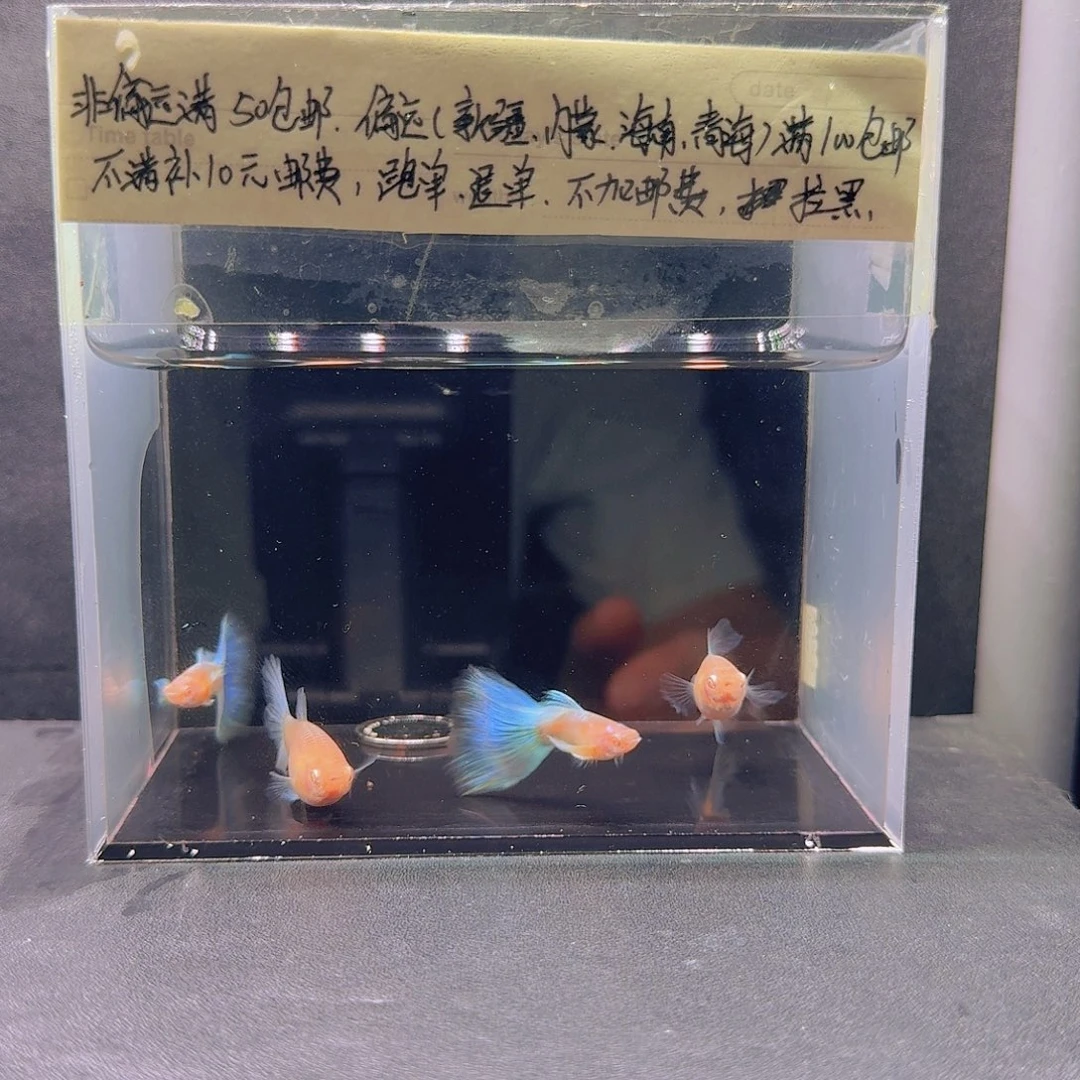 date
非偏远满50包邮.偏远(新疆、内蒙、海南、青海)满100包邮
Time table
不满补10元邮费,跑单、退单、不加邮费,拉黑,